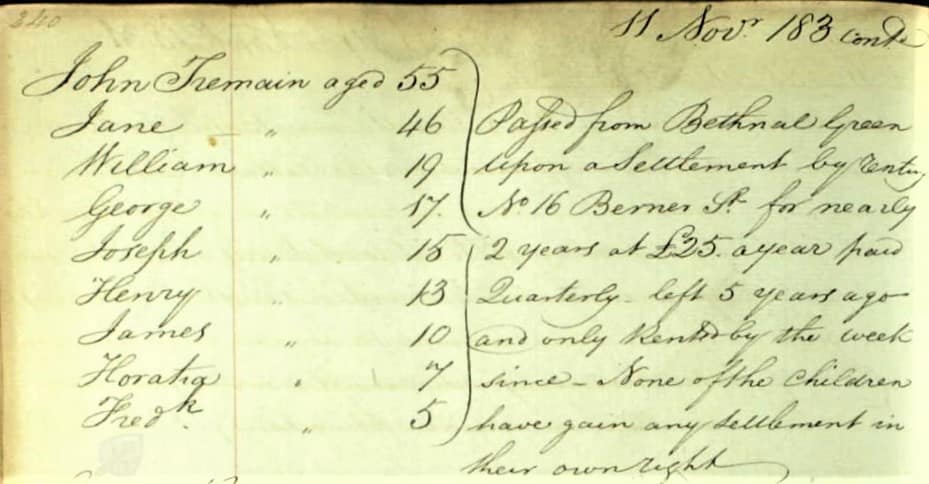 340
11 Novr. 183 contd
John Tremain aged 55
Jane " 46
William " 19
George " 17.
Joseph " 15
Henry " 13
James " 10
Horatia " 7
Fredk. " 5
Passed from Bethnal Green
upon a Settlement by renting
No. 16 Berner St. for nearly
2 years at £25. a year paid
Quarterly - left 5 years ago
and only Rented by the week
since - None of the Children
have gain any settlement in
their own right